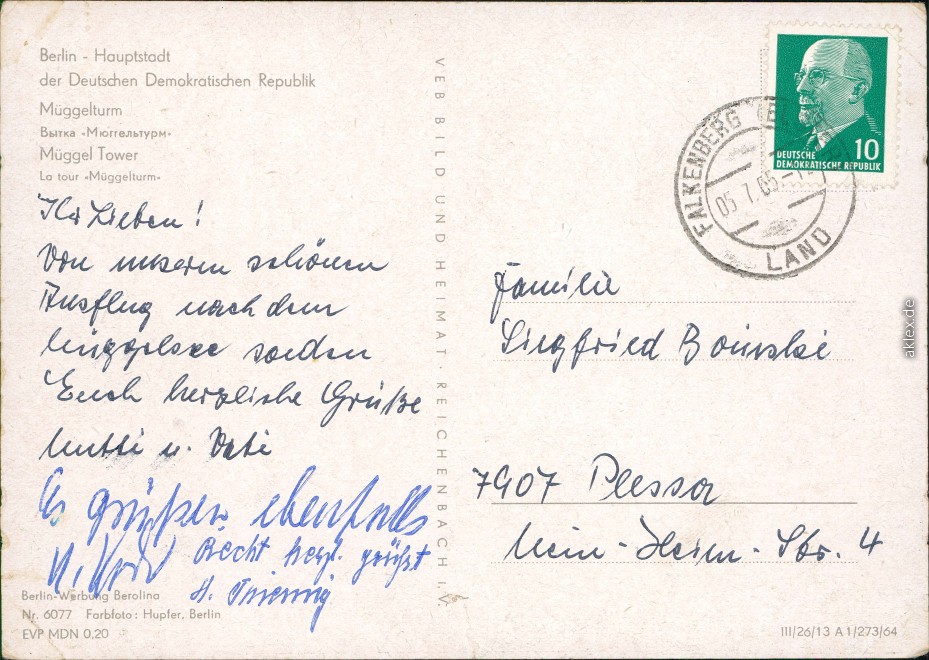 Berlin - Hauptstadt
der Deutschen Demokratischen Republik
Müggelturm
Вытка «Мюггельтурм»
Müggel Tower
La tour «Müggelturm»
Ihr Lieben!
Von unserem schönen
Ausflug nach dem
Müggelsee senden
Euch herzliche Grüße
Mutti u. Vati
Es grüßen ebenfalls
Recht herzl. grüßt
Berlin-Werbung Berolina
Nr. 6077 Farbfoto: Hupfer, Berlin
EVP MDN 0,20
VEB BILD UND HEIMAT · REICHENBACH i. V.
FALKENBERG
LAND
05.7.65-12
DEUTSCHE
DEMOKRATISCHE REPUBLIK
10
Familie
Siegfried
7907 Plessa
Mein-Heim-Str. 4
III/26/13 A 1/273/64
aklex.de